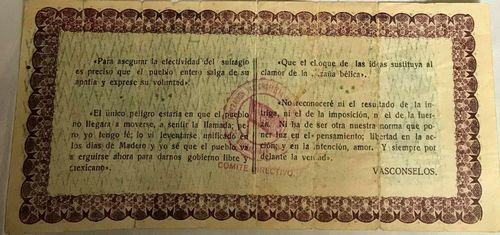 «Para asegurar la efectividad del sufragio
es preciso que el pueblo entero salga de su
apatía y exprese su voluntad».
«El único peligro estaría en que el pueblo
no llegara a moverse, a sentir la llamada; pe-
ro, yo tengo fé; lo ví levantarse unificado en
los días de Madero y yo sé que el pueblo va
a erguirse ahora para darnos gobierno libre y
mexicano».
«Que el choque de las ideas sustituya al
clamor de la hazaña bélica».
«No reconoceré ni el resultado de la in-
triga, ni el de la imposición, ni el de la fuer-
za. Ni ha de ser otra nuestra norma que po-
ner luz en el pensamiento; libertad en la ac-
ción; y en la intención, amor. Y siempre por
delante la verdad».
VASCONSELOS.
COMITE DIRECTIVO